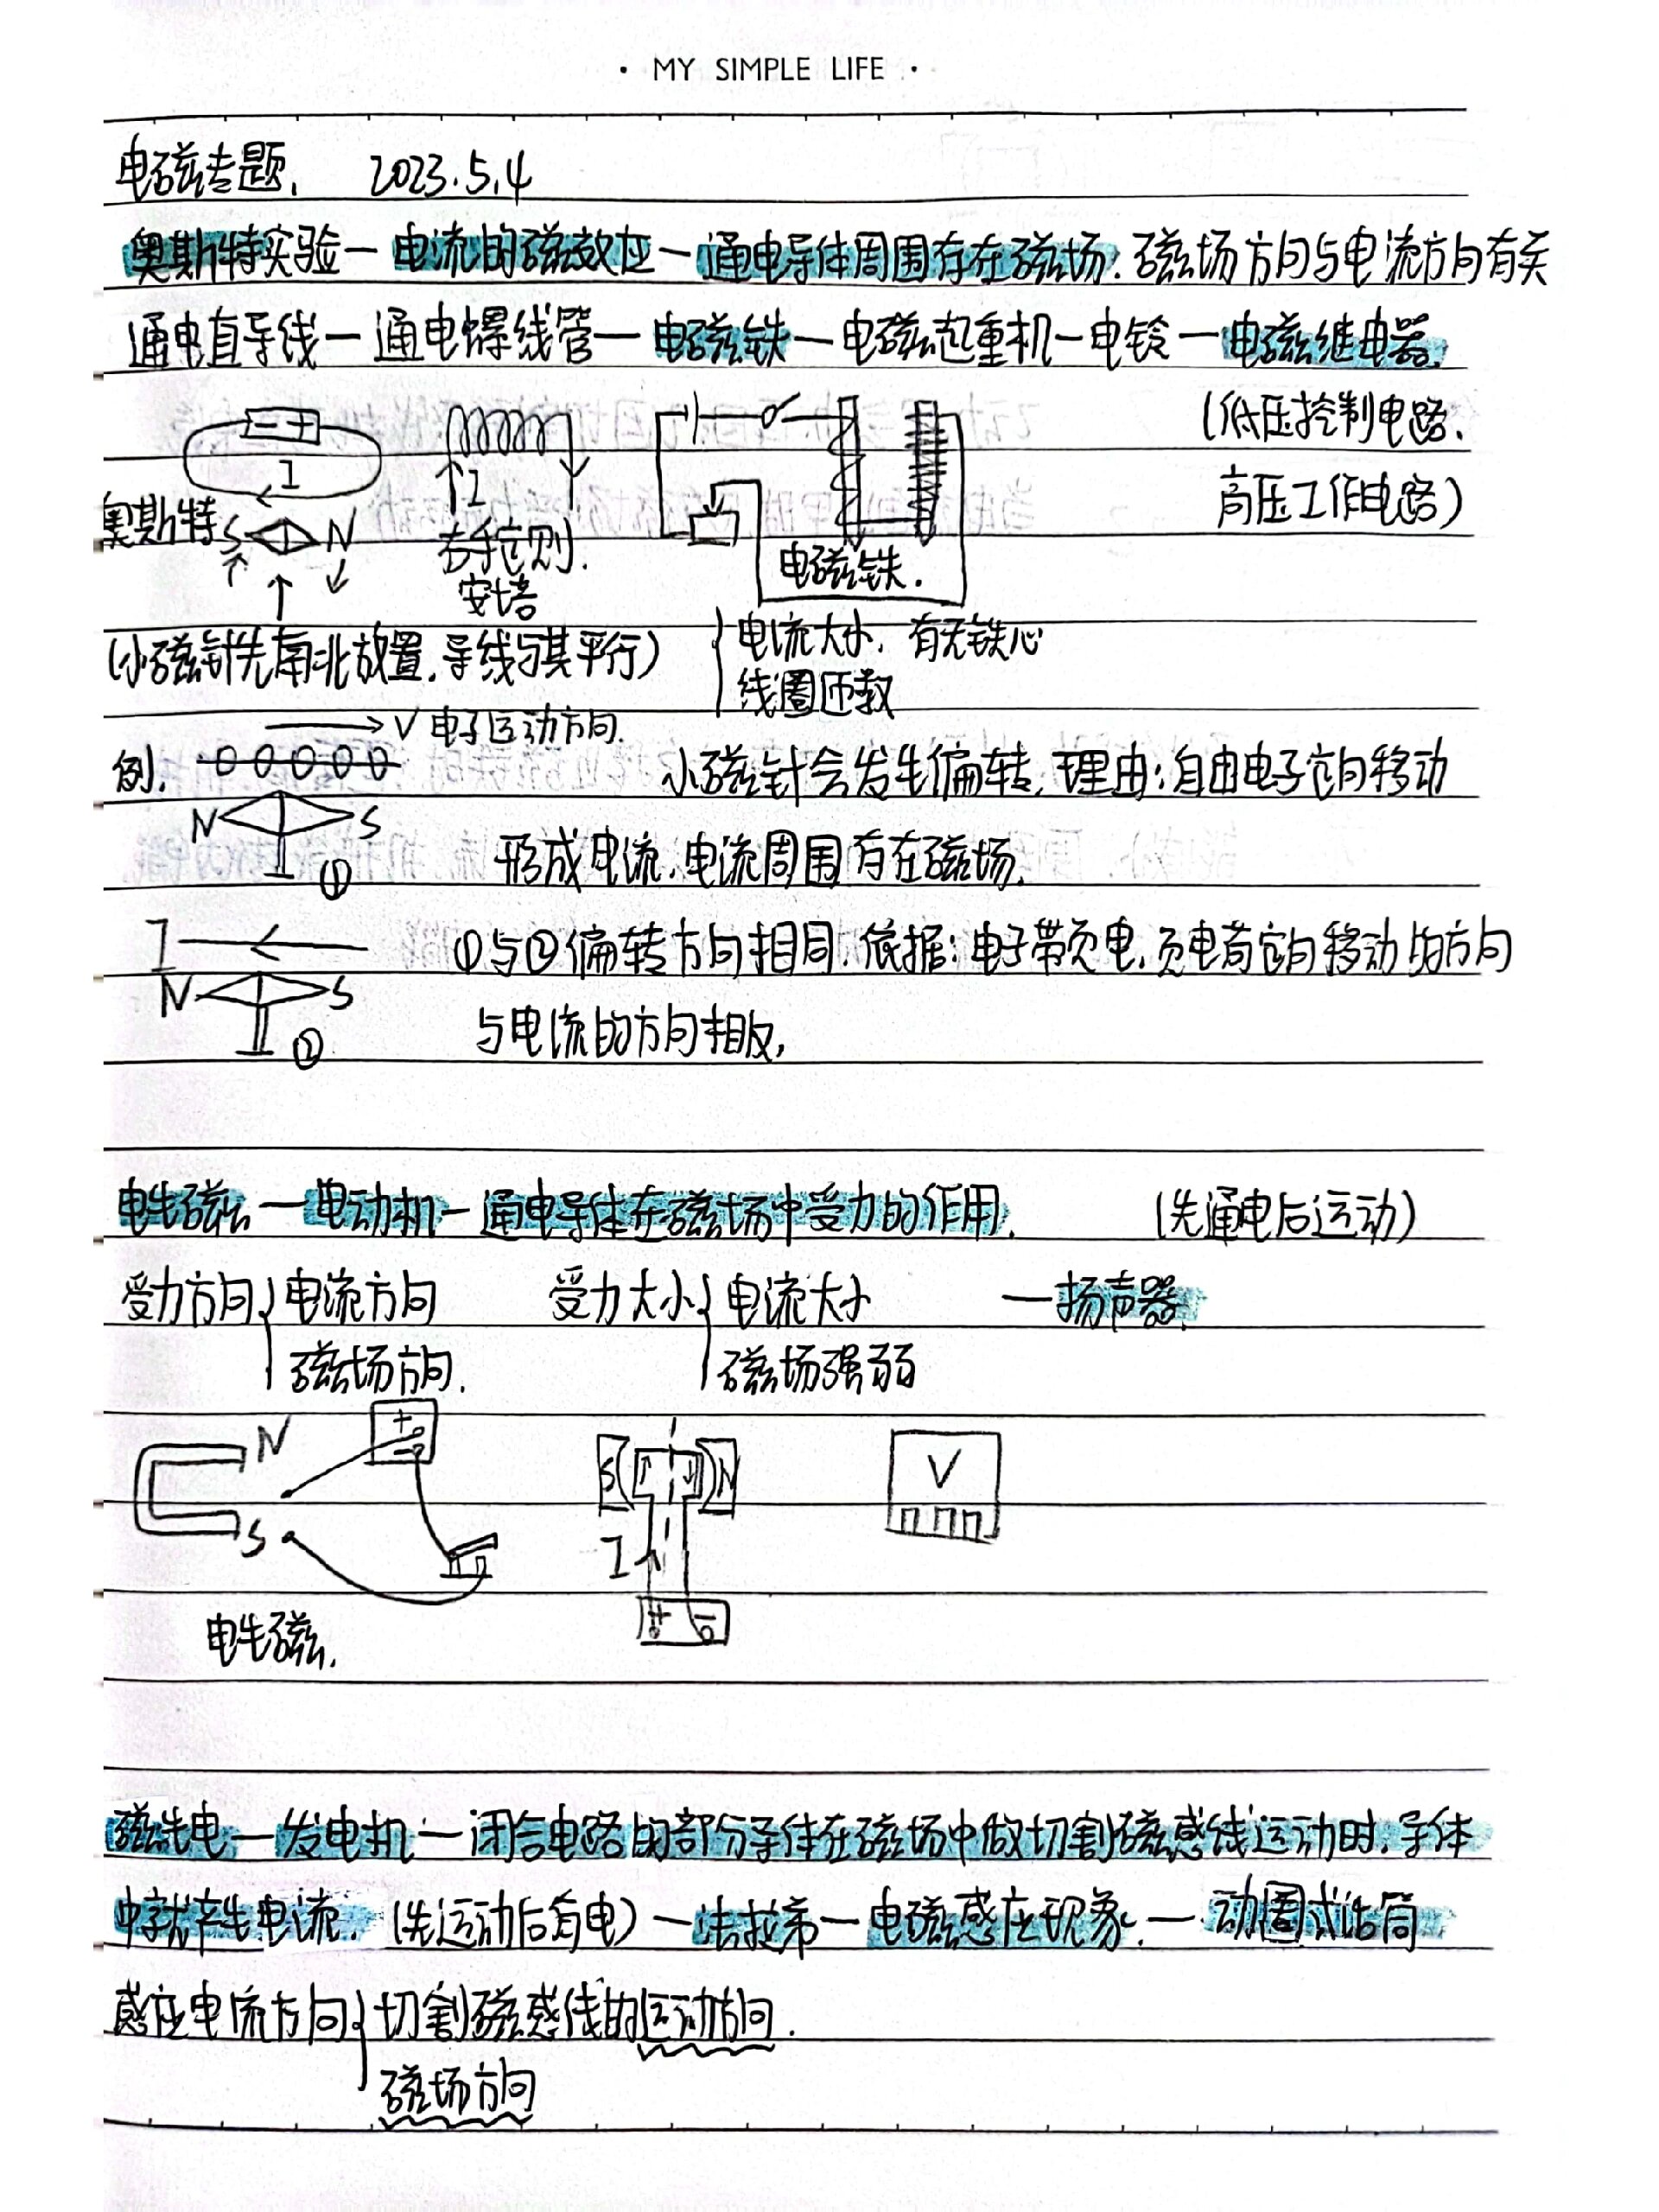 · MY SIMPLE LIFE ·
电磁专题. 2023.5.4
奥斯特实验—电流的磁效应—通电导体周围存在磁场.磁场方向与电流方向有关
通电直导线—通电螺线管—电磁铁—电磁起重机—电铃—电磁继电器.
(低压控制电路.
高压工作电路)
- +
I
I
奥斯特 S N
右手定则.
安培
电磁铁.
(小磁针先南北放置.导线与其平行)
电流大小. 有无铁心
线圈匝数
V 电子运动方向.
例. 小磁针会发生偏转.理由:自由电子定向移动
N S
①
形成电流.电流周围存在磁场.
I
①与②偏转方向相同.依据:电子带负电.负电荷定向移动的方向
N S
②
与电流的方向相反,
电生磁—电动机—通电导体在磁场中受力的作用. (先通电后运动)
受力方向{电流方向 受力大小{电流大小 —扬声器.
磁场方向. 磁场强弱
N + -
S N V
S I
+ -
电生磁.
磁生电—发电机—闭合电路的部分导体在磁场中做切割磁感线运动时.导体
中就产生电流. (先运动后有电)—法拉第—电磁感应现象.—动圈式话筒
感应电流方向{切割磁感线的运动方向.
磁场方向